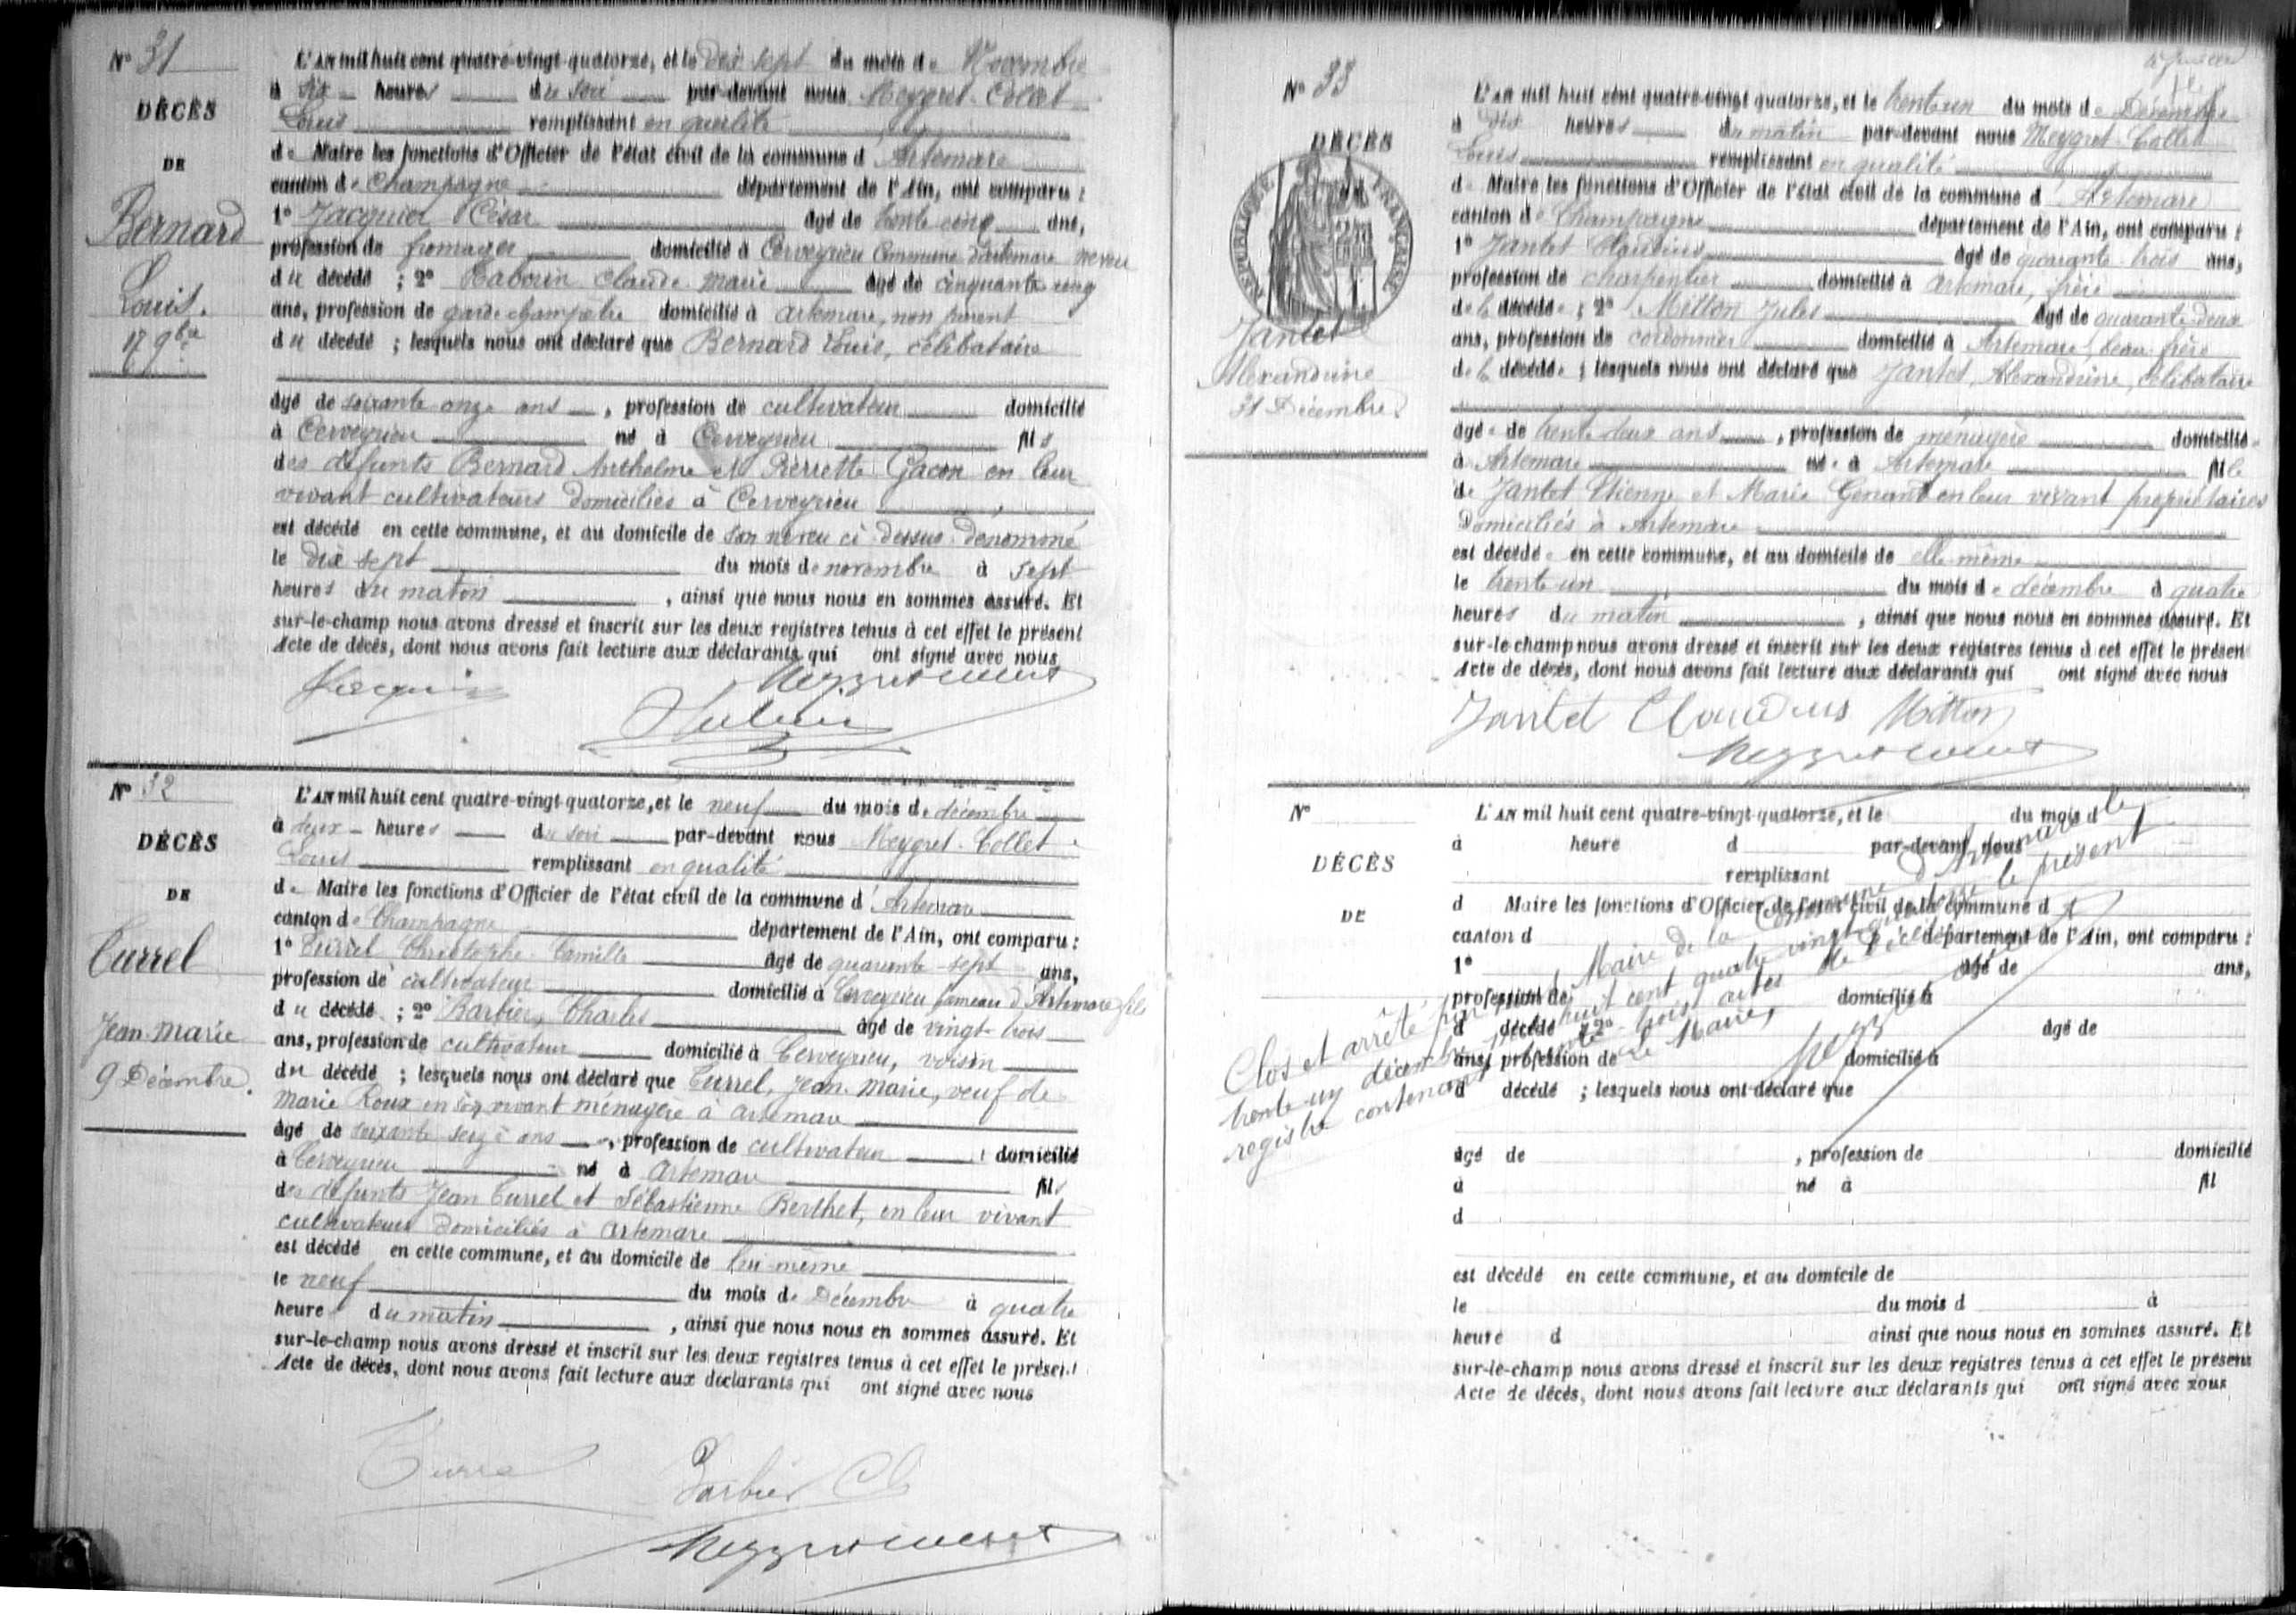 N° 31
DÉCÈS
DE
Bernard
Louis.
17 9bre
L'AN mil huit cent quatre-vingt-quatorze, et le dix sept du mois de Novembre
à six heures du soir par-devant nous Meygret-Collet
Louis remplissant en qualité
de Maire les fonctions d'Officier de l'état civil de la commune d'Artemare
canton de Champagne département de l'Ain, ont comparu :
1° Jacquier César âgé de trente cinq ans,
profession de fromager domicilié à Cerveyrieu Commune d'artemare neveu
du décédé ; 2° Rabouin Claude Marie âgé de cinquante cinq
ans, profession de garde champêtre domicilié à Artemare, non parent
du décédé ; lesquels nous ont déclaré que Bernard Louis, célibataire
âgé de soixante onze ans , profession de cultivateur domicilié
à Cerveyrieu né à Cerveyrieu fils
des défunts Bernard Anthelme et Pierrette Gacon en leur
vivant cultivateurs domiciliés à Cerveyrieu
est décédé en cette commune, et au domicile de son neveu ci-dessus dénommé
le dix sept du mois de novembre à sept
heures du matin , ainsi que nous nous en sommes assuré. Et
sur-le-champ nous avons dressé et inscrit sur les deux registres tenus à cet effet le présent
Acte de décès, dont nous avons fait lecture aux déclarants qui ont signé avec nous
N° 32
DÉCÈS
DE
Turrel
Jean-Marie
9 Décembre.
L'AN mil huit cent quatre-vingt-quatorze, et le neuf du mois de décembre
à deux heures du soir par-devant nous Meygret-Collet
Louis remplissant en qualité
de Maire les fonctions d'Officier de l'état civil de la commune d'Artemare
canton de Champagne département de l'Ain, ont comparu :
1° Turrel Christophe Camille âgé de quarante-sept ans,
profession de cultivateur domicilié à Cerveyrieu hameau d'Artemare fils
du décédé ; 2° Barbier, Charles âgé de vingt-trois
ans, profession de cultivateur domicilié à Cerveyrieu, voisin
du décédé ; lesquels nous ont déclaré que Turrel, Jean-Marie, veuf de
Marie Roux en son vivant ménagère à artemare
âgé de soixante seize ans , profession de cultivateur domicilié
à Cerveyrieu né à Artemare fils
des défunts Jean Turrel et Sébastienne Berthet, en leur vivant
cultivateurs domiciliés à Artemare
est décédé en cette commune, et au domicile de lui-même
le neuf du mois de Décembre à quatre
heure du matin , ainsi que nous nous en sommes assuré. Et
sur-le-champ nous avons dressé et inscrit sur les deux registres tenus à cet effet le présent
Acte de décès, dont nous avons fait lecture aux déclarants qui ont signé avec nous
Barbier Ch
N° 33
DÉCÈS
RÉPUBLIQUE FRANÇAISE
Jantet
Alexandrine
31 Décembre
L'AN mil huit cent quatre-vingt quatorze, et le trente un du mois de Décembre
à dix heures du matin par-devant nous Meygret-Collet
Louis remplissant en qualité
de Maire les fonctions d'Officier de l'état civil de la commune d'Artemare
canton de Champagne département de l'Ain, ont comparu :
1° Jantet Claudius âgé de quarante-trois ans,
profession de charpentier domicilié à Artemare, frère
de la décédée ; 2° Mitton Jules âgé de quarante-deux
ans, profession de cordonnier domicilié à Artemare, beau-frère
de la décédée ; lesquels nous ont déclaré que Jantet, Alexandrine, célibataire
âgée de trente deux ans , profession de ménagère domiciliée
à Artemare née à Artemare fille
de Jantet Etienne et Marie Genant en leur vivant propriétaires
domiciliés à Artemare
est décédée en cette commune, et au domicile de elle-même
le trente-un du mois de décembre à quatre
heures du matin , ainsi que nous nous en sommes assuré. Et
sur-le-champ nous avons dressé et inscrit sur les deux registres tenus à cet effet le présent
Acte de décès, dont nous avons fait lecture aux déclarants qui ont signé avec nous
Jantet Claudius Mitton
N°
DÉCÈS
DE
L'AN mil huit cent quatre-vingt-quatorze, et le du mois d
à heure d par-devant nous
remplissant
d Maire les fonctions d'Officier de l'état civil de la commune d
canton d département de l'Ain, ont comparu :
1° âgé de ans,
profession de domicilié à
d décédé ; 2° âgé de
ans, profession de domicilié à
d décédé ; lesquels nous ont déclaré que
âgé de , profession de domicilié
à né à fil
d
est décédé en cette commune, et au domicile de
le du mois d à
heure d ainsi que nous nous en sommes assuré. Et
sur-le-champ nous avons dressé et inscrit sur les deux registres tenus à cet effet le présent
Acte de décès, dont nous avons fait lecture aux déclarants qui ont signé avec nous
Clos et arrêté par nous, Maire de la Commune d'Artemare le
trente un décembre mil huit cent quatre vingt quatorze le présent
registre contenant trente-trois actes de décès
Le Maire,